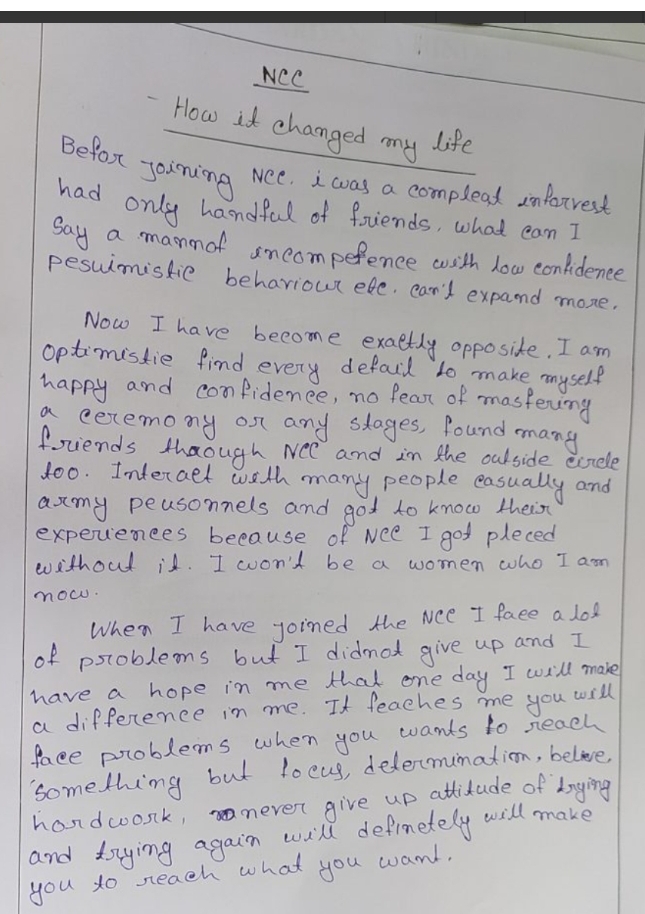 NCC
- How it changed my life
Befor joining NCC. i was a compleat intorvest
had only handful of friends, what can I
Say a mannof incompetence with low confidence
pesuimistic behaviour etc. can't expand more.
Now I have become exactly opposite. I am
Optimistic find every detail to make myself
happy and confidence, no fear of mastering
a ceremony or any stages, found many
friends through NCC and in the outside circle
too. Interact with many people casually and
army peusonnels and got to know their
experiences because of NCC I got pleced
without it. I won't be a women who I am
now.
When I have joined the NCC I face a lot
of problems but I didnot give up and I
have a hope in me that one day I will make
a difference in me. It teaches me you will
face problems when you wants to reach
something but focus, determination, belive,
hardwork, never give up attitude of trying
and trying again will definetely will make
you to reach what you want.